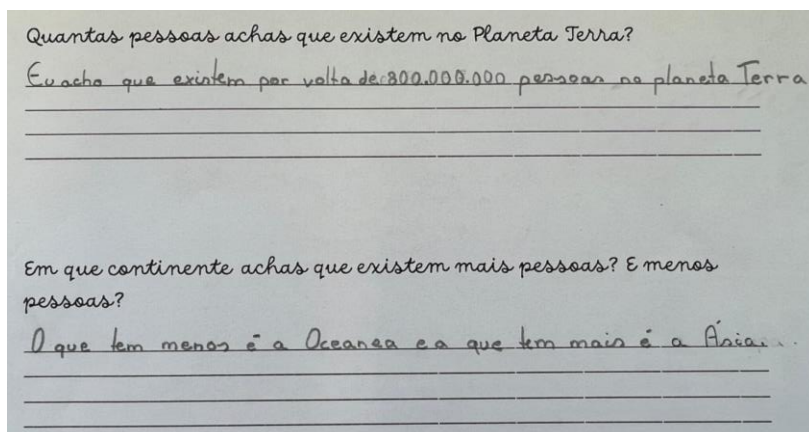 Quantas pessoas achas que existem no Planeta Terra?
Eu acho que existem por volta de 800.000.000 pessoas no planeta Terra
Em que continente achas que existem mais pessoas? E menos
pessoas?
O que tem menos é a Oceanea e a que tem mais é a Ásia.